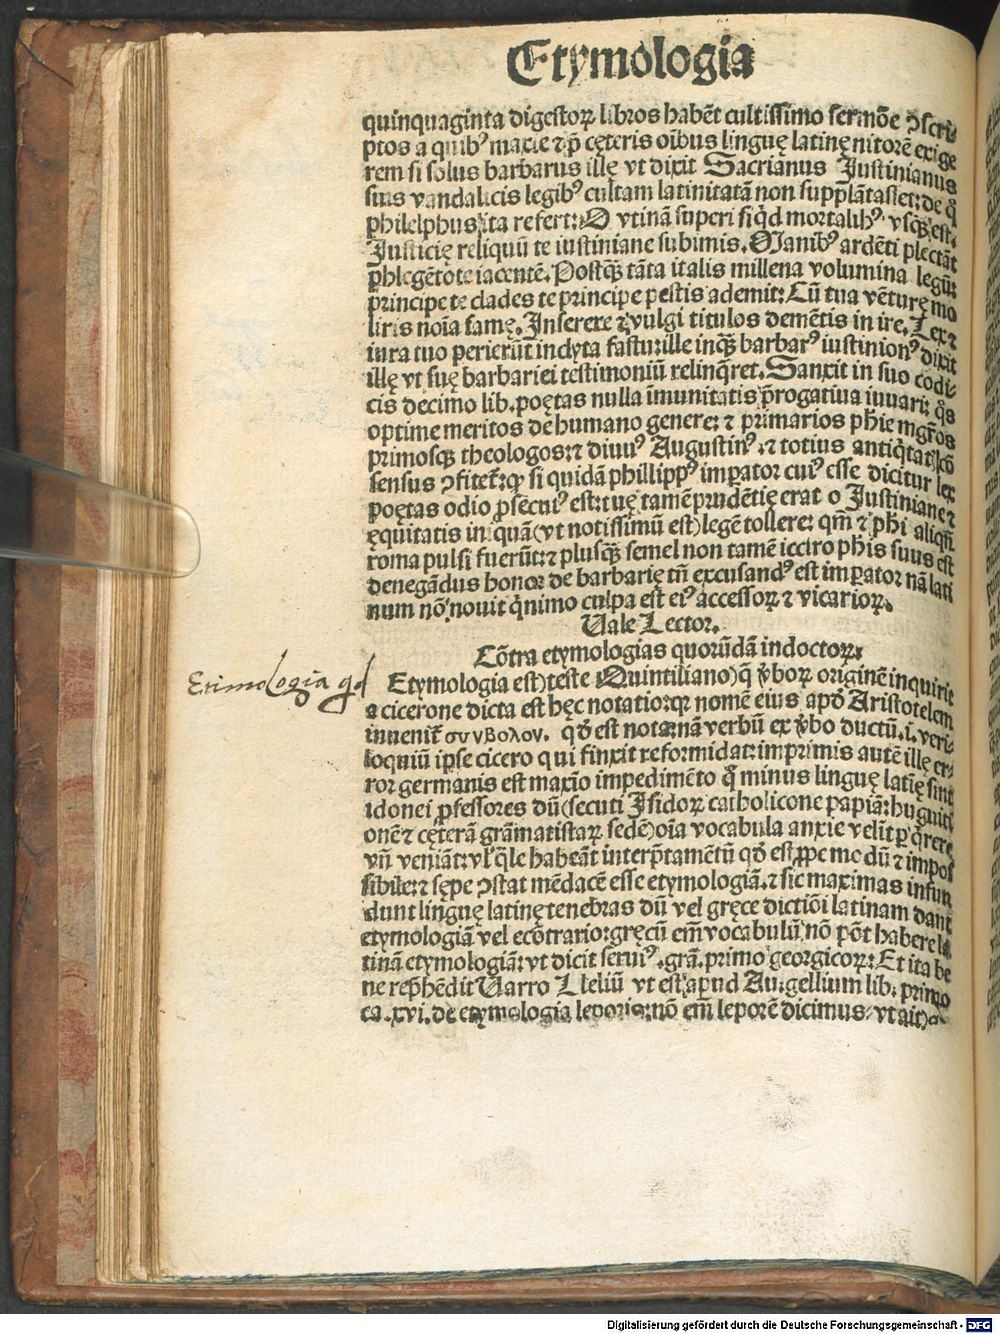 Etymologia
quinquaginta digestoꝝ libros habēt cultissimo sermōe ↄscri-
ptos a quibꝰ maxīe & p̄ cęteris oībus linguę latinę nitorē exige
rem si solus barbarus illę vt dixit Sacrianus Justinianus
suis vandalicis legibꝰ cultam latinitatā non supplātasset: de q̄
philelphus ita refert: O vtinā superi si qd mortalibꝰ vsqꝫ est.
Justicię reliquū te iustiniane subimis. Manibꝰ ardēti plectāt
phlegētote iacentē. Postqꝫ tāta italis millena volumina legū:
principe te clades te principe pestis ademit: Cū tua vēture mo
liris noīa famę. Inserere & vulgi titulos demētis in ire. Lex &
iura tuo perierūt inclyta fastu: ille inqꝫ barbarꝰ iustinionꝰ dixit
illę vt suę barbariei testimoniū relinqret. Sanxit in suo codi-
cis decimo lib. poętas nulla imunitatis p̄rogatiua iuuari: q̄s
optime meritos de humano genere: & primarios phīe mgr̄os
primosqꝫ theologos: & diuuꝰ Augustinꝰ. & totius antiqtatꝭ ↄ̄
sensus ↄfitet̄: qꝫ si quidā phillippꝰ imꝑator cuiꝰ esse dicitur lex
poętas odio ꝓsecutꝰ est: tuę tamē prudētię erat o Justiniane &
ęquitatis in quā (vt notissimū est) legē tollere: qm̄ & phī aliqn̄
roma pulsi fuerūt: & plusqꝫ semel non tamē iccirco phīs suus est
denegādus honor de barbarię tn̄ excusandꝰ est imꝑator nā lati
num nō nouit qnimo culpa est eiꝰ accessoꝝ & vicarioꝝ.
Uale Lector.
Cōtra etymologias quorūdā indoctoꝝ:
Etimologia qd
Etymologia est) teste Quintiliano) q̄ v̄boꝝ originē inquirit
a cicerone dicta est hęc notatio: qꝫ nomē eius apd̄ Aristotelem
inuenit̄ συνβολον. qd̄ est nota: nā verbū ex v̄bo ductū .i. veri-
loquiū ipse cicero qui finxit reformidat: imprimis autē ille er-
ror germanis est maxīo impedimēto q̄ minus linguę latīę sint
idonei ꝓfessores dū (secuti Isidoꝝ catholicone papiā: huguiti
onē & cęterā grāmatistaꝝ sedē) oīa vocabula anxie velīt ꝑqrere
vn̄ veniāt: vl̄ qle habeāt interp̄tamētū qd̄ est ꝓpe me dū & impos
sibile: & sępe ↄstat mēdacē esse etymologiā. & sic maximas infun
dunt linguę latinę tenebras dū vel gręce dictiōi latinam dant
etymologiā vel ecōtrario: gręcū em̄ vocabulū nō pōt habere la
tinā etymologiā: vt dicit seruiꝰ .grā. primo georgicoꝝ: Et ita be
ne rep̄hēdit Uarro Lleliū vt est apud Au. gellium lib. primo
ca. xvi. de etymologia leporis: nō em̄ leporē dicimus (vt ait)
Digitalisierung gefördert durch die Deutsche Forschungsgemeinschaft - DFG